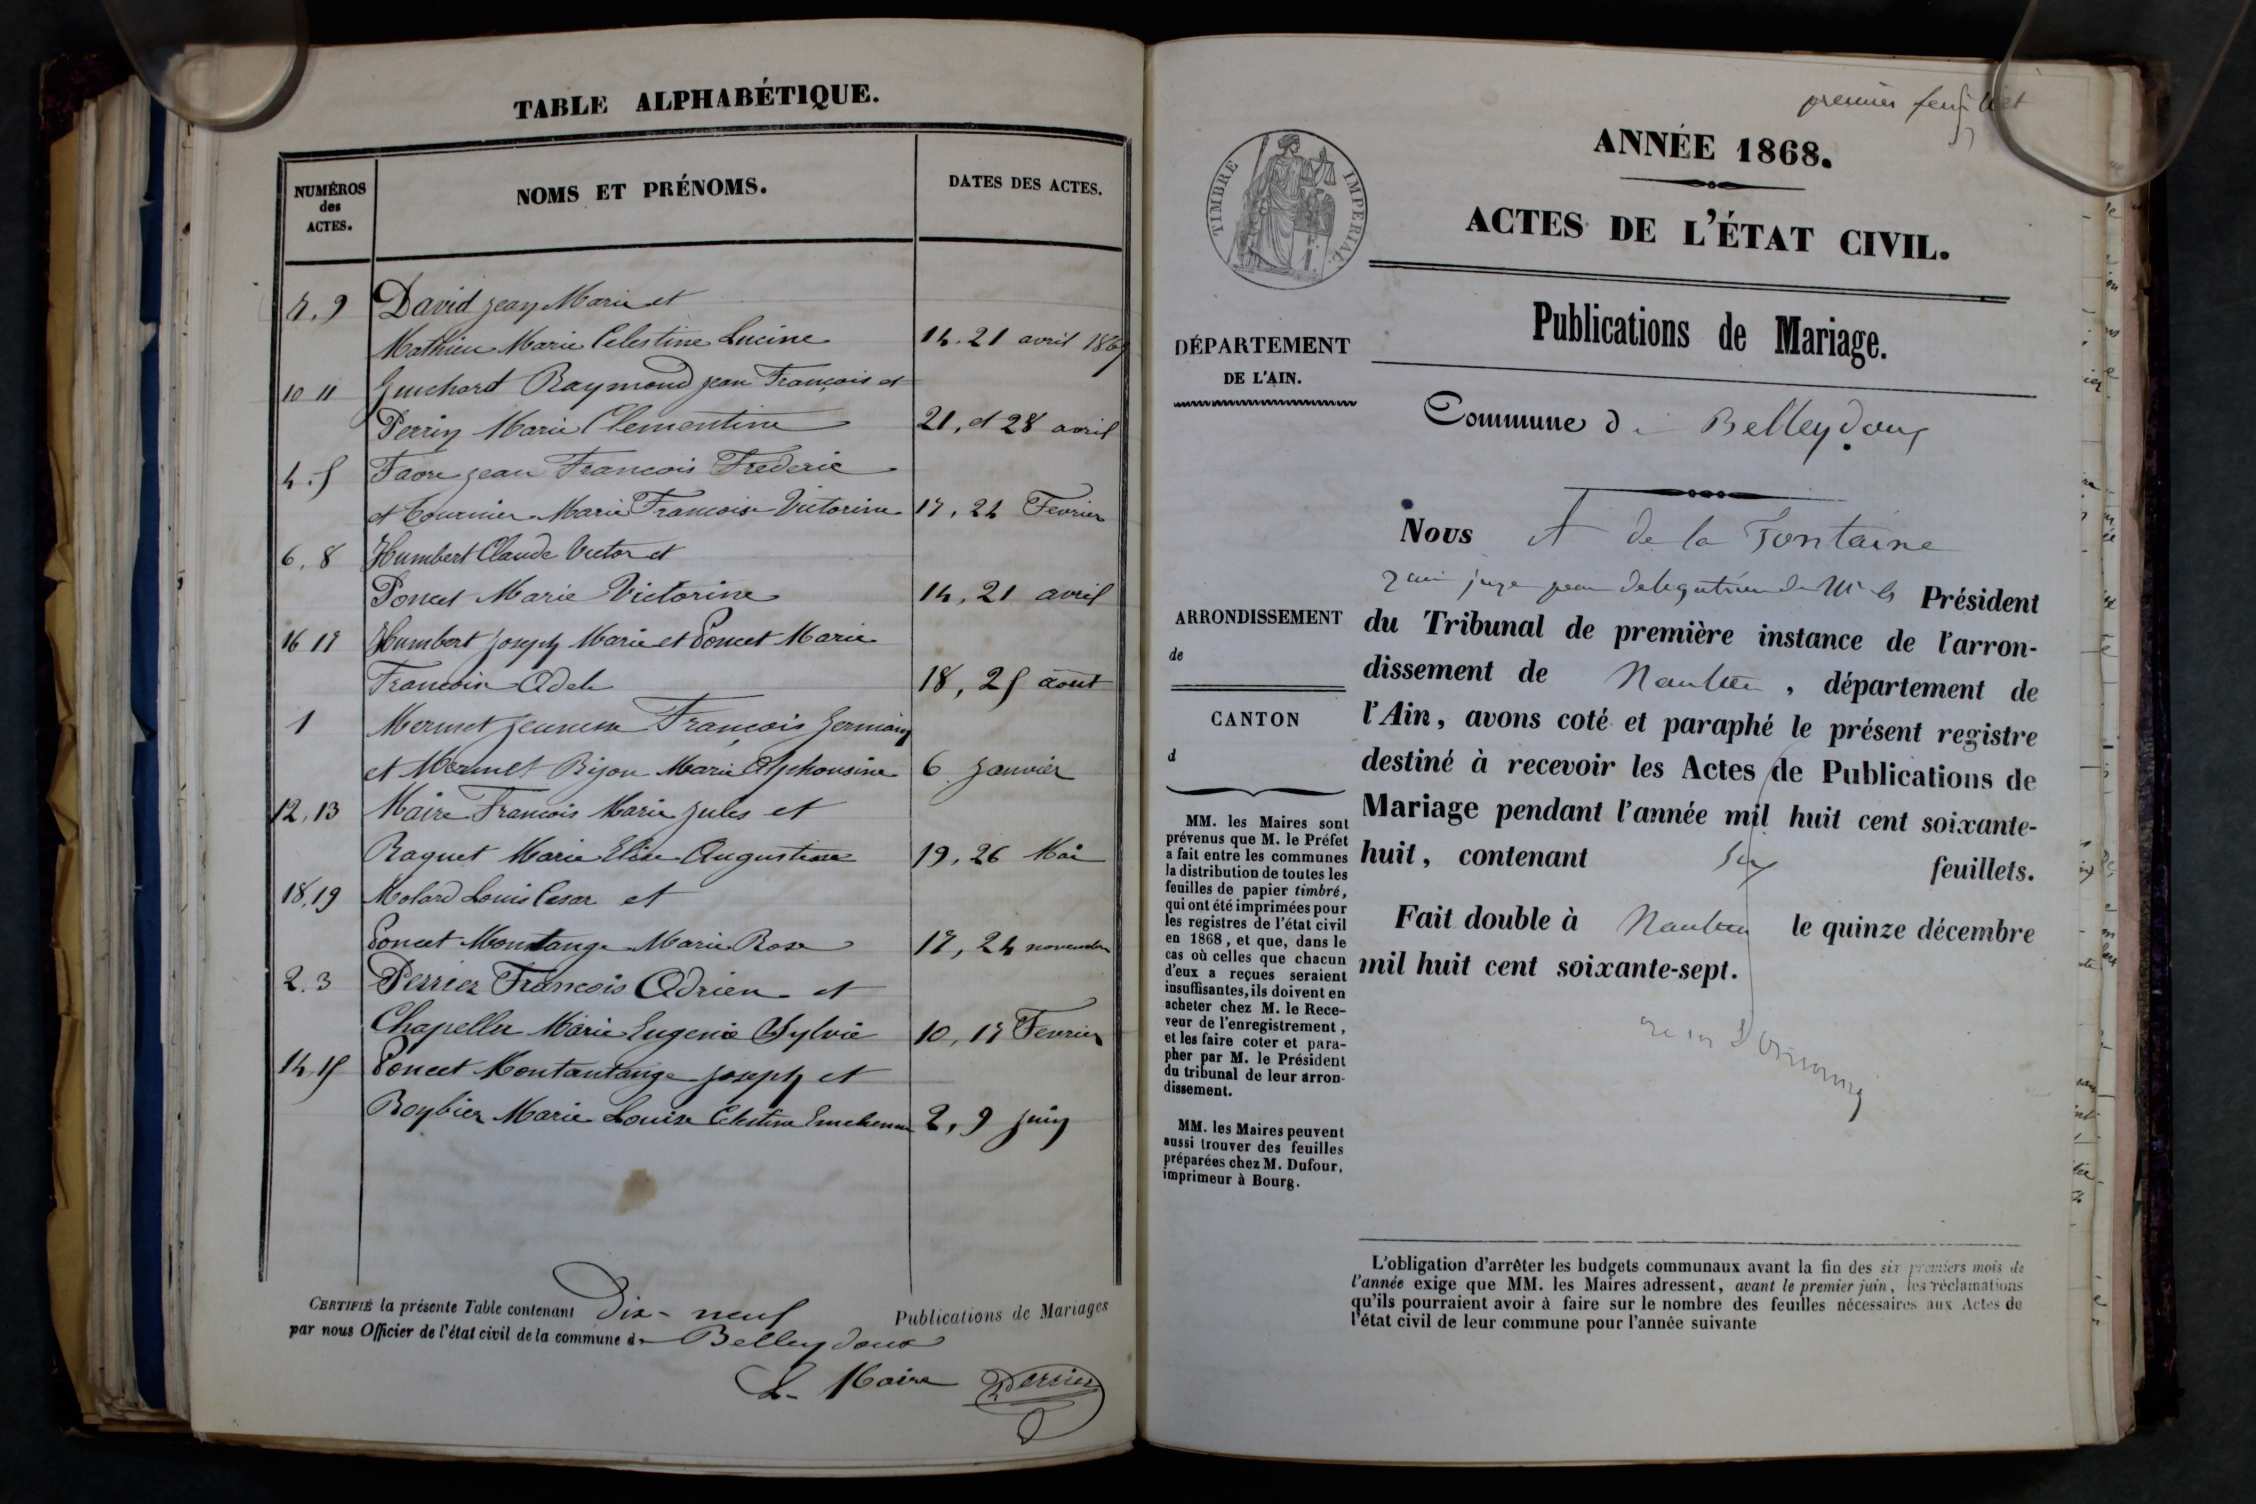 TABLE ALPHABÉTIQUE.
NUMÉROS
des
ACTES.
NOMS ET PRÉNOMS.
DATES DES ACTES.
7, 9 David jean Marie et
Mathieu Marie Celestine Lucine 14. 21 avril 1867
10 11 Guichard Raymond jean François et
Perrin Marie Clementine 21, et 28 avril
4. 5 Favre jean Francois Frederic
et Tournier Marie Francoise Victorine 17, 24 Fevrier
6, 8 Humbert Claude Victor et
Poncet Marie Victorine 14, 21 avril
16 17 Humbert joseph Marie et Poncet Marie
Francoise Adele 18, 25 aout
1 Mermet jeunesse François Germain
et Mermet Bijon Marie Alphonsine 6 janvier
12, 13 Maire Francois Marie jules et
Raquet Marie Elise Augustine 19, 26 Mai
18, 19 Molard Louis Cesar et
Poncet Montange Marie Rose 17, 24 novembre
2. 3 Perrier François Adrien et
Chapellu Marie Eugenie Sylvie 10, 17 Fevrier
14. 15 Poncet Montantange joseph et
Roybier Marie Louise Celestine 2, 9 juin
CERTIFIÉ la présente Table contenant Dix-neuf Publications de Mariages
par nous Officier de l'état civil de la commune de Belleydoux
Le Maire Perrier
premier feuillet
TIMBRE IMPERIAL
ANNÉE 1868.
ACTES DE L'ÉTAT CIVIL.
Publications de Mariage.
DÉPARTEMENT
DE L'AIN.
Commune de Belleydoux
Nous A de la Fontaine
juge par delegation de Mr le Président
du Tribunal de première instance de l'arron-
dissement de Nantua, département de
l'Ain, avons coté et paraphé le présent registre
destiné à recevoir les Actes de Publications de
Mariage pendant l'année mil huit cent soixante-
huit, contenant six feuillets.
Fait double à Nantua le quinze décembre
mil huit cent soixante-sept.
ARRONDISSEMENT
de
CANTON
d
MM. les Maires sont
prévenus que M. le Préfet
a fait entre les communes
la distribution de toutes les
feuilles de papier timbré,
qui ont été imprimées pour
les registres de l'état civil
en 1868, et que, dans le
cas où celles que chacun
d'eux a reçues seraient
insuffisantes, ils doivent en
acheter chez M. le Rece-
veur de l'enregistrement,
et les faire coter et para-
pher par M. le Président
du tribunal de leur arron-
dissement.
MM. les Maires peuvent
aussi trouver des feuilles
préparées chez M. Dufour,
imprimeur à Bourg.
L'obligation d'arrêter les budgets communaux avant la fin des six premiers mois de
l'année exige que MM. les Maires adressent, avant le premier juin, les réclamations
qu'ils pourraient avoir à faire sur le nombre des feuilles nécessaires aux Actes de
l'état civil de leur commune pour l'année suivante